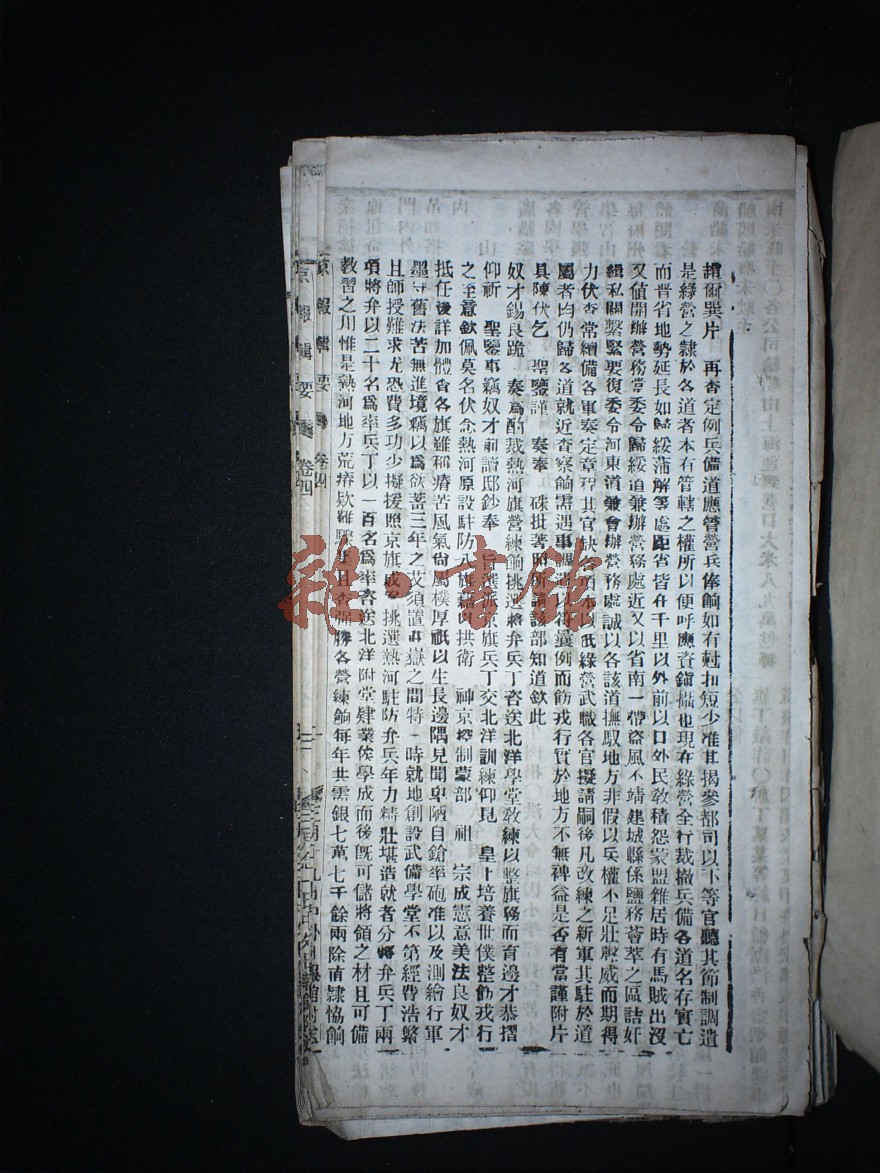 趙爾巽片　再查定例兵備道應管營兵俸餉如有尅扣短少准其揭參都司以下等官聽其節制調遣
是綠營之隸於各道者本有管轄之權所以便呼應資鎮攝也現在綠營全行裁撤兵備各道名存實亡
而晉省地勢延長如歸綏蒲解等處距省皆在千里以外前以口外民敎積怨蒙盟雜居時有馬賊出沒
又値開辦營務常委令歸綏道兼辦營務處近又以省南一帶盜風不靖建城縣係鹽務薈萃之區詰奸
緝私關繫緊要復委令河東道兼會辦營務處誠以各該道撫馭地方非假以兵權不足壯聲威而期得
力伏查常續備各軍奏定章程其官缺 以抵綠營武職各官擬請嗣後凡改練之新軍其駐於道
屬者均仍歸各道就近查察餉需遇事調遣以符曩例而飭戎行實於地方不無裨益是否有當謹附片
具陳伏乞　聖鑒謹　奏奉　硃批著照所請該部知道欽此
奴才錫良跪　奏爲酌裁熱河旗營練餉挑選將弁兵丁咨送北洋學堂敎練以整旗務而育邊才恭摺
仰祈　聖鑒事竊奴才前讀邸鈔奉　旨選派京旗兵丁交北洋訓練仰見　皇上培養世僕整飭戎行
之至意欽佩莫名伏念熱河原設駐防八旗藉以拱衛　神京控制蒙部　祖　宗成憲意美法良奴才
抵任後詳加體會各旗雖稱瘠苦風氣尙屬樸厚祇以生長邊隅見聞卑陋自鎗率砲准以及測繪行軍
墨守舊法苦無進境竊以爲欲蓄三年之艾須置莊嶽之間特一時就地創設武備學堂不第經費浩繁
且師授難求尤恐費多功少擬援照京旗成 挑選熱河駐防弁兵年力精壯堪造就者分將弁兵丁兩
項將弁以二十名爲率兵丁以一百名爲率咨送北洋附堂肄業俟學成而後旣可儲將領之材且可備
敎習之用惟是熱河地方荒瘠欵難驟集且查 各營練餉每年共需銀七萬七千餘兩除直隸協餉
京報輯要 卷四
京報輯要 卷四
雜·書館